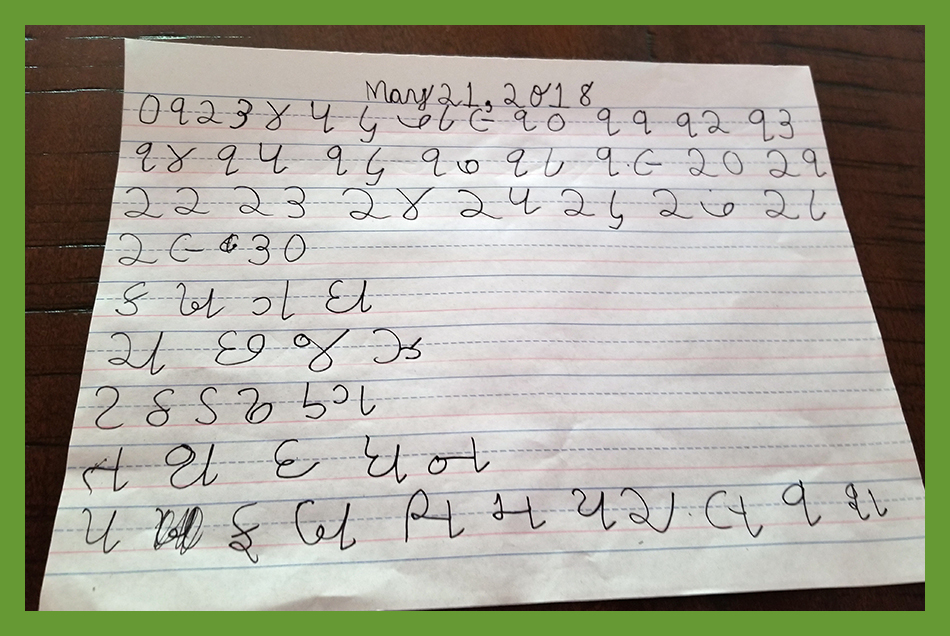 May 21, 2018
0 ૧ 2 3 ૪ ૫ ૬ ૭ ૮ ૯ ૧૦ ૧૧ ૧૨ ૧૩
૧૪ ૧૫ ૧૬ ૧૭ ૧૮ ૧૯ ૨૦ ૨૧
૨૨ ૨૩ ૨૪ ૨૫ ૨૬ ૨૭ ૨૮
૨૯ ૩૦
ક ખ ગ ઘ
ચ છ જ ઝ
ટ ઠ ડ ઢ ણ
ત થ દ ધ ન
પ ફ બ ભ મ ય ર લ વ શ